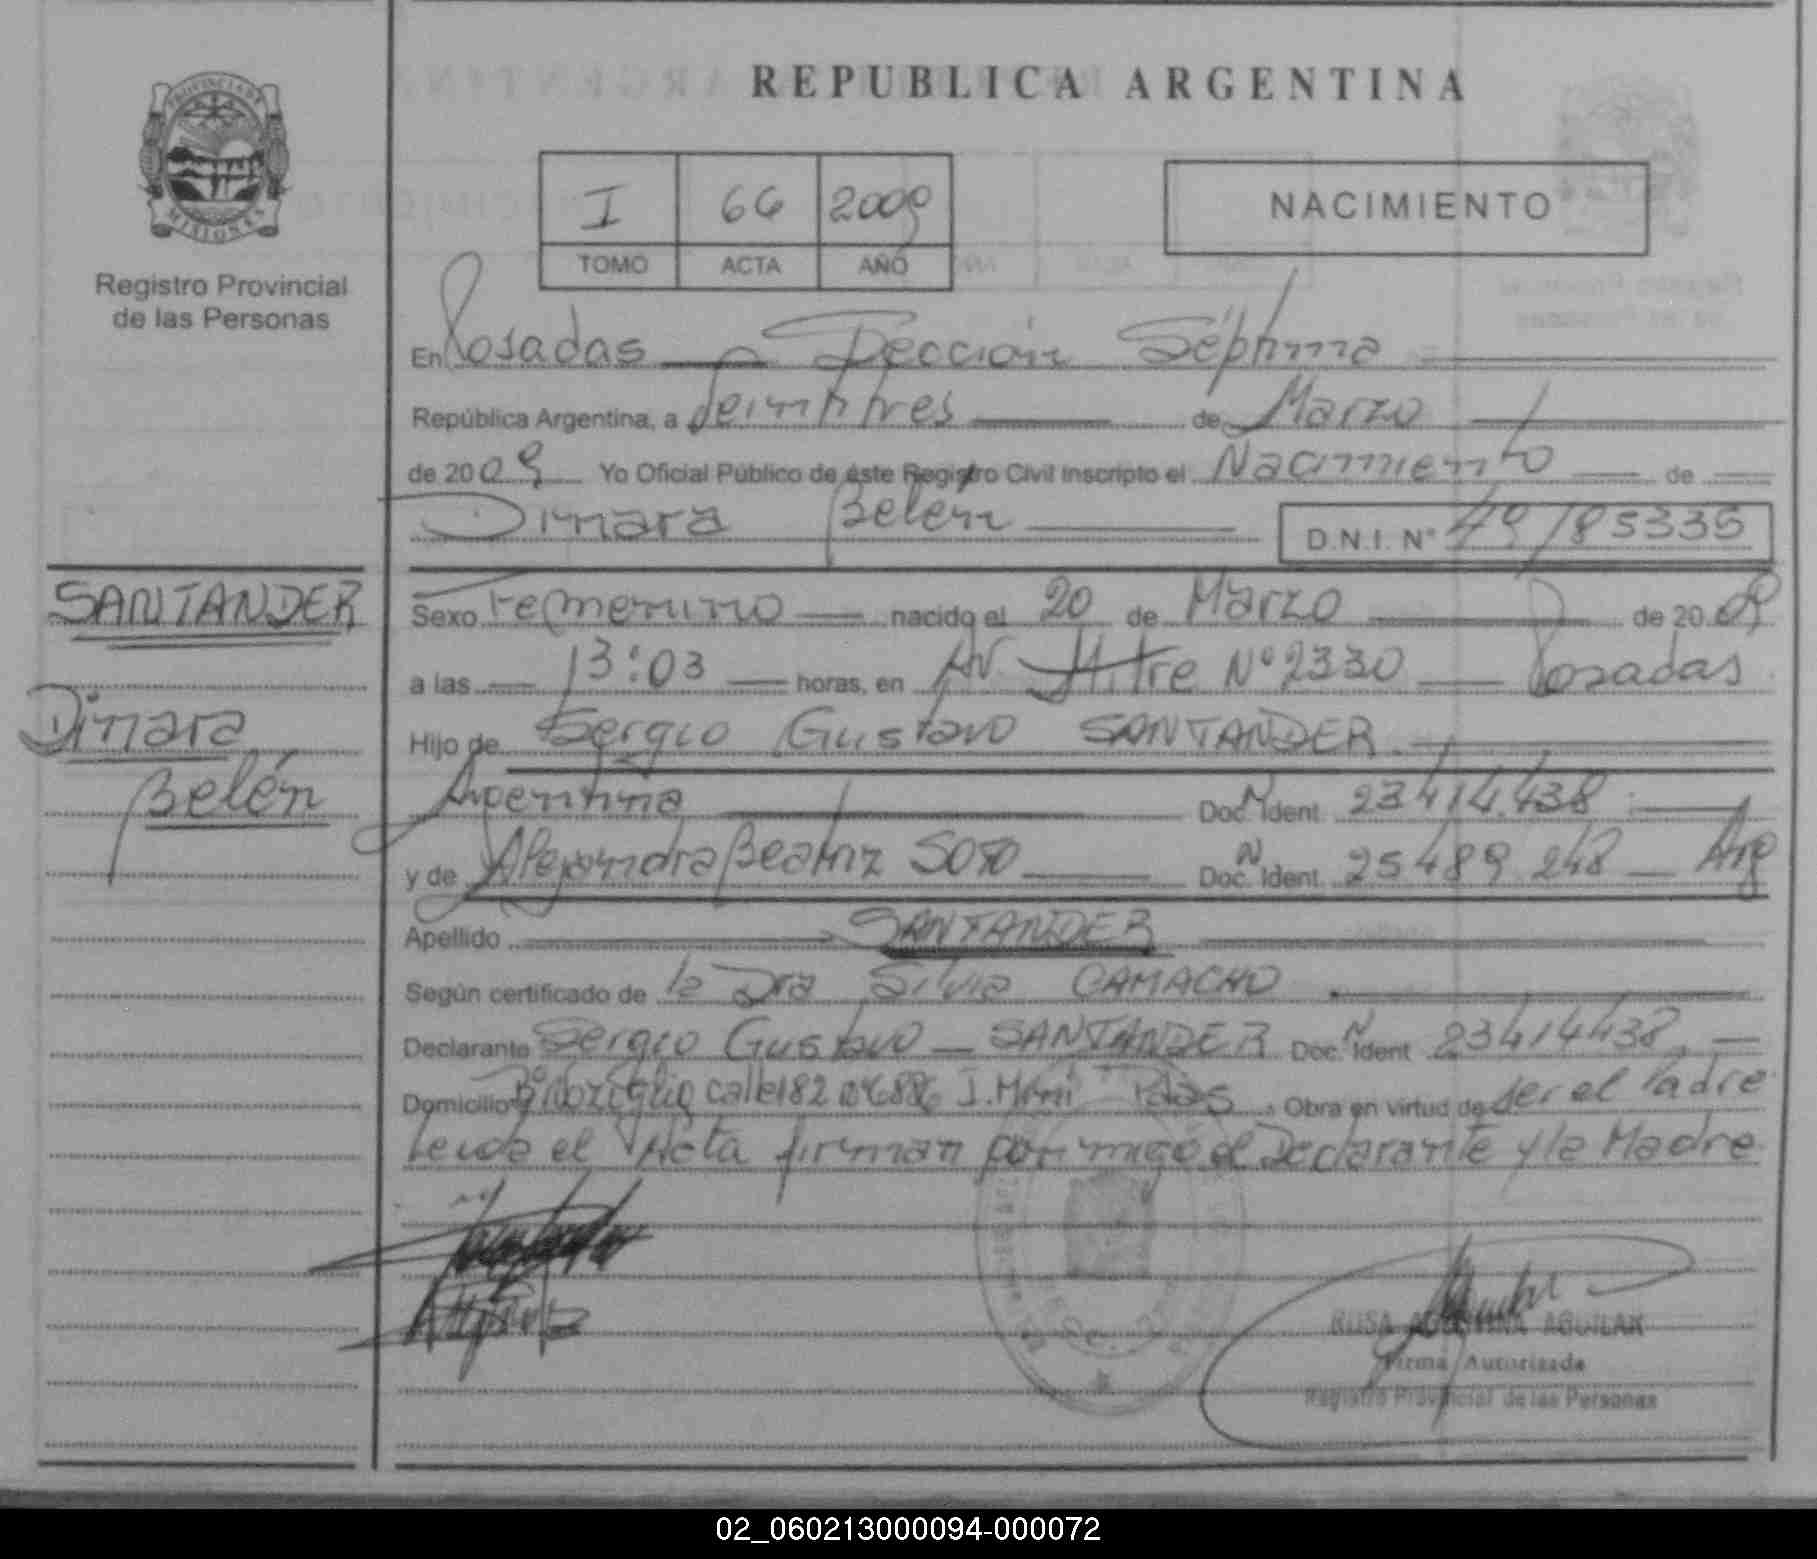 PROVINCIA DE
MISIONES
Registro Provincial
de las Personas
SANTANDER
Dimara
Belén
REPUBLICA ARGENTINA
I 66 2009
TOMO ACTA AÑO
NACIMIENTO
En Posadas Sección Séptima
República Argentina, a Veintitres de Marzo
de 2009 Yo Oficial Público de éste Registro Civil Inscripto el Nacimiento de
Dimara Belén D.N.I. N° 49/85335
Sexo Femenino nacido el 20 de Marzo de 2009
a las 13:03 horas, en Av. Mitre N° 2330 Posadas
Hijo de Sergio Gustavo SANTANDER
Argentina Doc. N Ident. 23.414.438
y de Alejandra Beatriz Soto Doc. N Ident. 25489 248 Arg
Apellido SANTANDER
Según certificado de la Dra Silvia CAMACHO
Declarante Sergio Gustavo SANTANDER Doc. N Ident 23414438
Domicilio calle 182 Pdas . Obra en virtud de ser el Padre
Leida el Acta firman conmigo el Declarante y la Madre
ROSA AGUILAR
Firma Autorizada
Registro Provincial de las Personas
02_060213000094-000072